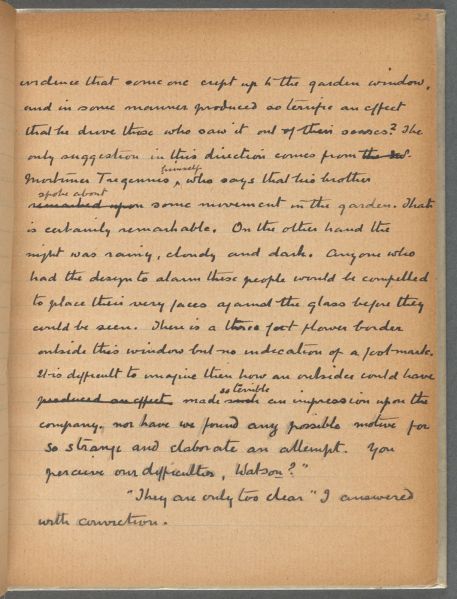 22
evidence that some one crept up to the garden window,
and in some manner produced so terrific an effect
that he drove those who saw it out of their senses? The
only suggestion in this direction comes from
Mortimer Tregennis himself, who says that his brother
spoke about
remarked upon some movement in the garden. That
is certainly remarkable. On the other hand the
night was rainy, cloudy and dark. Anyone who
had the design to alarm these people would be compelled
to place their very faces against the glass before they
could be seen. There is a three foot flower border
outside this window but no indication of a footmark.
It is difficult to imagine then how an outsider could have
so terrible
produced an effect made such an impression upon the
company, nor have we found any possible motive for
so strange and elaborate an attempt. You
perceive our difficulties, Watson?"
"They are only too clear" I answered
with conviction.